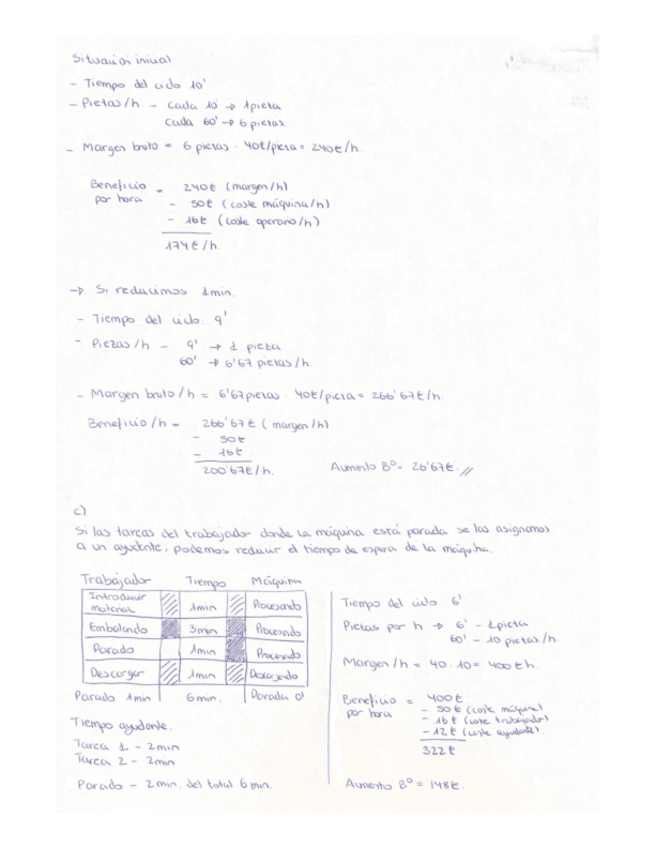 Situación inicial
- Tiempo del ciclo 10'
- Piezas/h - cada 10' → 1 pieza
cada 60' → 6 piezas
- Margen bruto = 6 piezas · 40€/pieza = 240€/h.
Beneficio por hora = 240€ (margen/h)
- 50€ (coste máquina/h)
- 16€ (coste operario/h)
174€/h.
→ Si reducimos 1min.
- Tiempo del ciclo 9'
- Piezas/h - 9' → 1 pieza
60' → 6'67 piezas/h.
- Margen bruto/h = 6'67 piezas · 40€/pieza = 266'67€/h.
Beneficio/h = 266'67€ (margen/h)
- 50€
- 16€
200'67€/h.
Aumento Bº = 26'67€. //
c)
Si las tareas del trabajador donde la máquina está parada se las asignamos
a un ayudante, podemos reducir el tiempo de espera de la máquina.
Trabajador Tiempo Máquina
Introducir material 1min Procesando
Embalando 3min Procesando
Parado 1min Procesando
Descargar 1min Descargando
Parado 1min 6min. Parada 0'
Tiempo ayudante.
Tarea 1 - 2min
Tarea 2 - 2min
Parado - 2min. del total 6min.
Tiempo del ciclo 6'
Piezas por h → 6' - 1 pieza
60' - 10 piezas/h
Margen/h = 40 · 10 = 400€h.
Beneficio por hora = 400€
- 50€ (coste máquina)
- 16€ (coste trabajador)
- 12€ (coste ayudante).
322€
Aumento Bº = 148€.